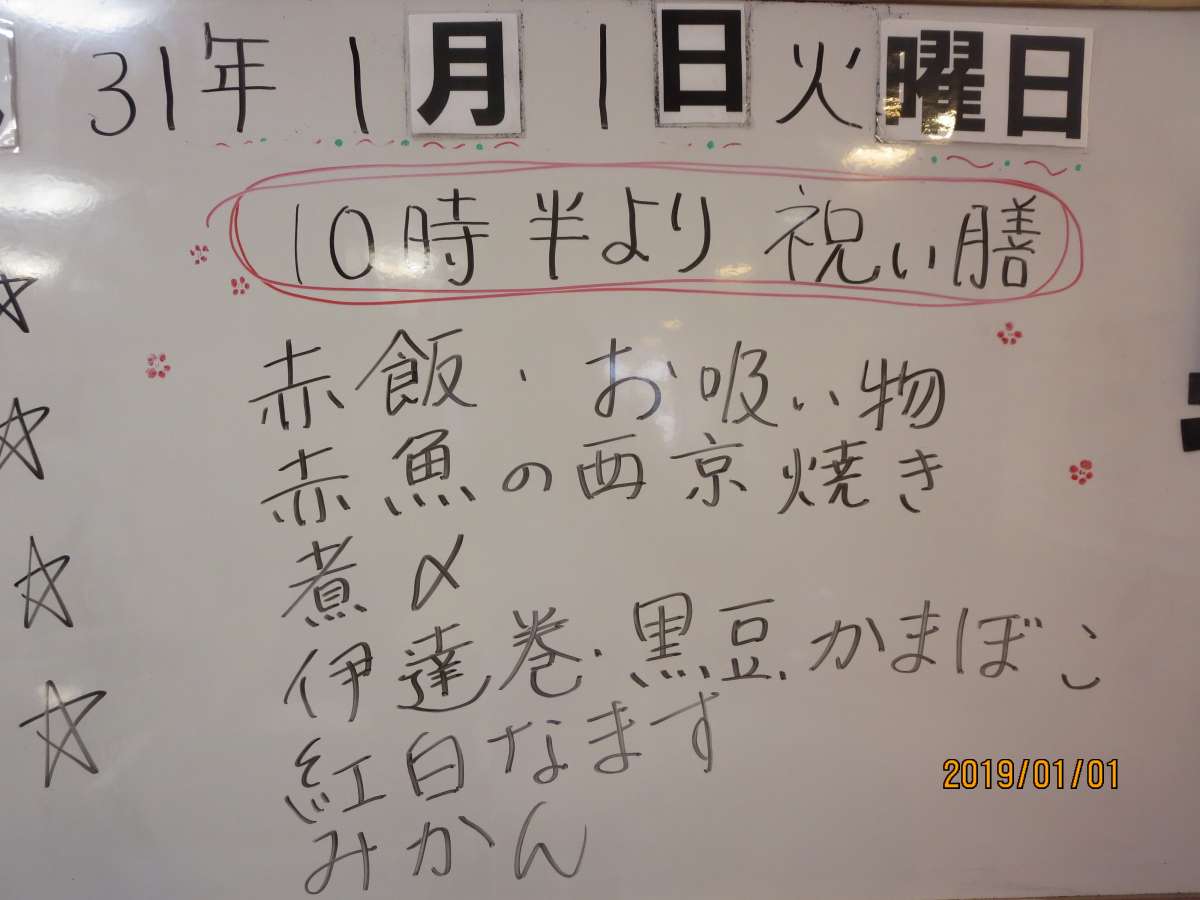 31年 1月 1日 火曜日
10時半より 祝い膳
赤飯・お吸い物
赤魚の西京焼き
煮〆
伊達巻・黒豆.かまぼこ
紅白なます
みかん
2019/01/01